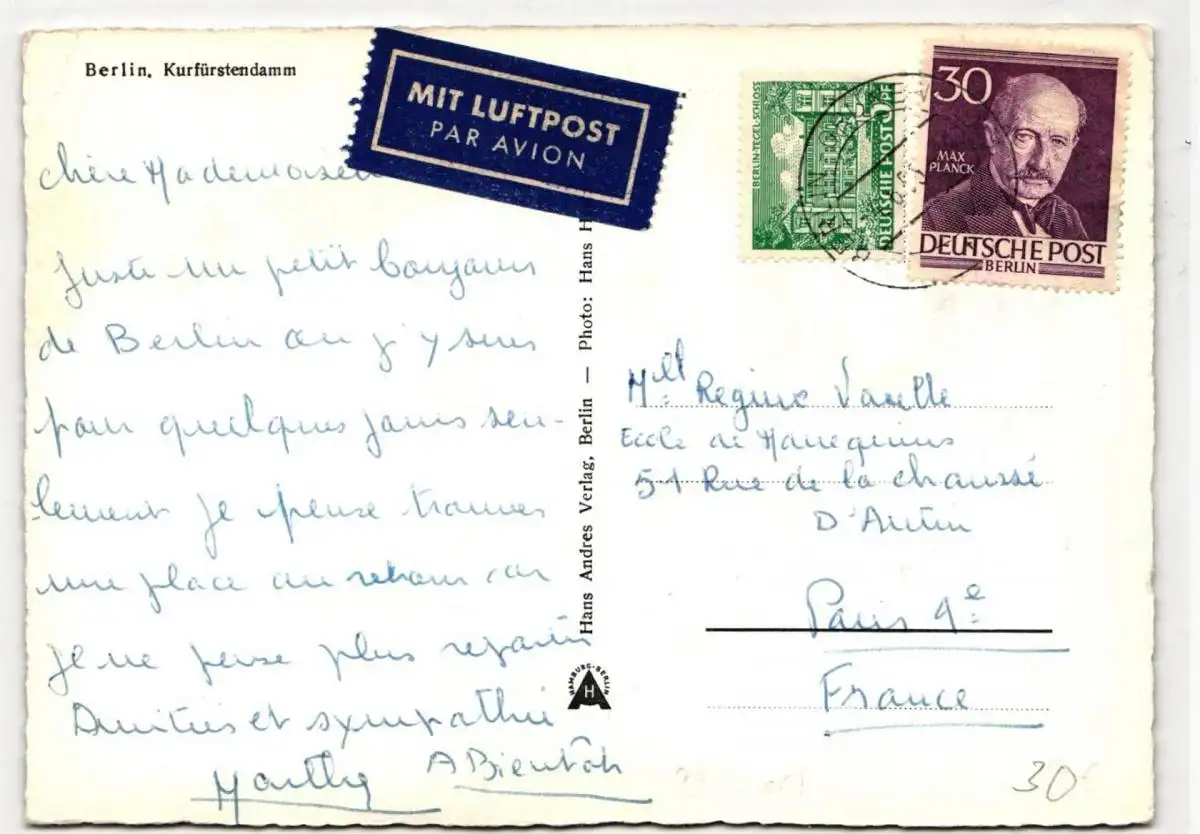 Berlin, Kurfürstendamm
MIT LUFTPOST
PAR AVION
BERLIN-TEGEL·SCHLOSS
5 PF
DEUTSCHE POST
30
MAX
PLANCK
DEUTSCHE POST
BERLIN
BERLIN
chère Mademoisell
Juste un petit bonjour
de Berlin ou j'y suis
pour quelques jours seu-
lement je pense trouver
une place au retour car
je ne pense plus repartir
Amitiés et sympathie
A Bientôt
Marthy
Hans Andres Verlag, Berlin — Photo: Hans H
HAMBURG-BERLIN
H
Mlle Regine Varelle
Ecole de Manequins
51 Rue de la chaussé
D'Antin
Paris 9e
France
30